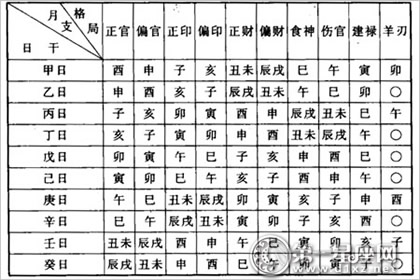 月支 格局
日干 正官 偏官 正印 偏印 正财 偏财 食神 伤官 建禄 羊刃
甲日 酉 申 子 亥 丑未 辰戌 巳 午 寅 卯
乙日 申 酉 亥 子 辰戌 丑未 午 巳 卯 〇
丙日 子 亥 卯 寅 酉 申 辰戌 丑未 巳 午
丁日 亥 子 寅 卯 申 酉 丑未 辰戌 午 〇
戊日 卯 寅 午 巳 子 亥 申 酉 巳 〇
己日 寅 卯 巳 午 亥 子 酉 申 午 〇
庚日 午 巳 丑未 辰戌 卯 寅 亥 子 申 酉
辛日 巳 午 辰戌 丑未 寅 卯 子 亥 酉 〇
壬日 丑未 辰戌 酉 申 午 巳 寅 卯 亥 子
癸日 辰戌 丑未 申 酉 巳 午 卯 寅 子 〇
第一星座网